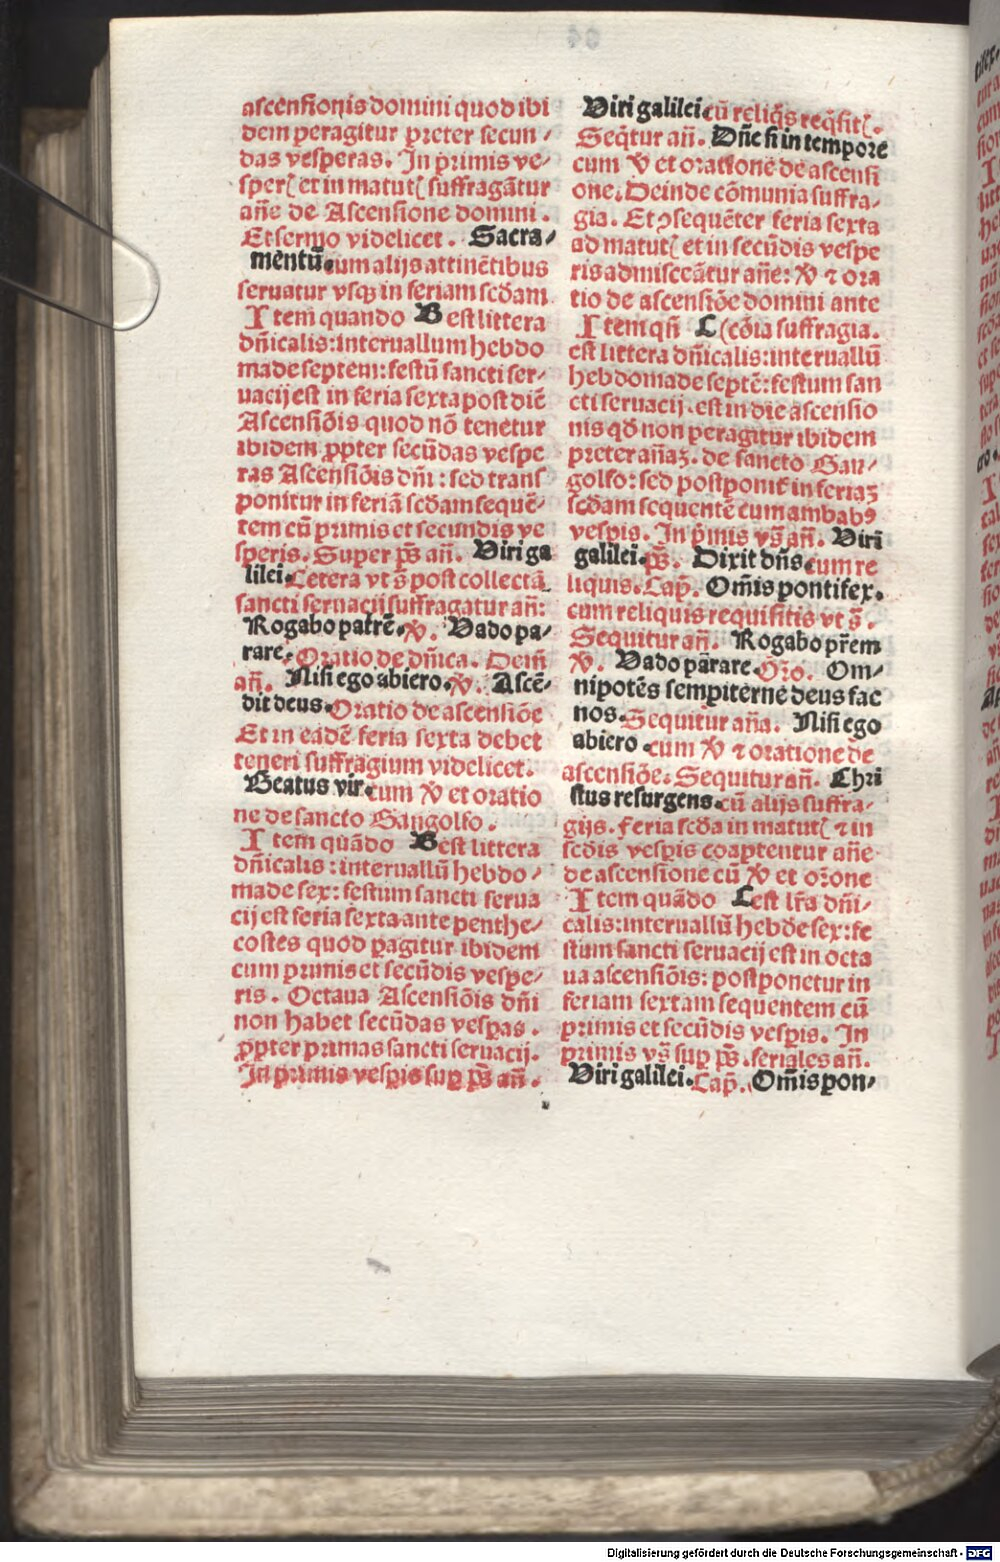 ascensionis domini quod ibi
dem peragitur preter secun⸗
das vesperas. In primis ve⸗
sperꝭ et in matutꝭ suffragātur
añe de Ascensione domini.
Et sermo videlicet. Sacra⸗
mentū. cum alijs attinētibus
seruatur vsqꝫ in feriam scd̄am
Item quando B est littera
dn̄icalis: interuallum hebdo
made septem: festū sancti ser⸗
uacij est in feria sexta post diē
Ascensiōis quod nō tenetur
ibidem ꝓpter secūdas vespe
ras Ascensiōis dn̄i: sed trans
ponitur in feriā scd̄am sequē⸗
tem cū primis et secundis ve
speris. Super pš añ. Viri ga
lilei. Cetera vt š post collectā
sancti seruacij suffragatur añ:
Rogabo patrē. ℣. Vado pa⸗
rare. Oratio de dn̄ica. Deīn
añ. Nisi ego abiero. ℣. Ascē⸗
dit deus. Oratio de ascensiōe
Et in eadē feria sexta debet
teneri suffragium videlicet.
Beatus vir. cum ℣ et oratio
ne de sancto Gangolfo.
Item quādo B est littera
dn̄icalis: interuallū hebdo⸗
made sex: festum sancti serua
cij est feria sexta ante penthe⸗
costes quod ꝑagitur ibidem
cum primis et secūdis vespe⸗
ris. Octaua Ascensiōis dn̄i
non habet secūdas vesꝑas.
ꝓpter primas sancti seruacij.
In primis vesꝑis suꝑ pš añ.
Viri galilei cū reliq̄s req̄sitꝭ.
Seq̄tur añ. Dn̄e si in tempore
cum ℣ et oratione de ascensi
one. Deinde cōmunia suffra⸗
gia. Et ꝯsequēter feria sexta
ad matutꝭ et in secūdis vespe
ris admisceātur añe: ℣ ⁊ ora
tio de ascensiōe domini ante
Item qn̄ C (cōia suffragia.
est littera dn̄icalis: interuallū
hebdomade septē: festum san
cti seruacij. est in die ascensio
nis qd̄ non peragitur ibidem
preter añaꝫ. de sancto Gau⸗
golfo: sed postponit̄ in feriaꝫ
scd̄am sequentē cum ambabꝯ
vesꝑis. In p̄mis vš añ. Viri
galilei. pš. Dixit dn̄s. cum re
liquis. Cap̄. Om̄is pontifex.
cum reliquis requisitis vt š.
Sequitur añ. Rogabo pr̄em
℣. Vado parare. Oro. Om⸗
nipotēs sempiterne deus fac
nos. Sequitur aña. Nisi ego
abiero. cum ℣ ⁊ oratione de
ascensiōe. Sequitur añ. Chri
stus resurgens. cū alijs suffra⸗
gijs. Feria scd̄a in matutꝭ ⁊ in
scd̄is vesꝑis coaptentur añe
de ascensione cū ℣ et orōne
Item quādo C est lr̄a dn̄i⸗
calis: interuallū hebd̄e sex: fe
stum sancti seruacij est in octa
ua ascensiōis: postponetur in
feriam sextam sequentem cū
primis et secūdis vesꝑis. In
primis vš suꝑ pš. feriales añ.
Viri galilei. Cap̄. Om̄is pon⸗
Digitalisierung gefördert durch die Deutsche Forschungsgemeinschaft - DFG